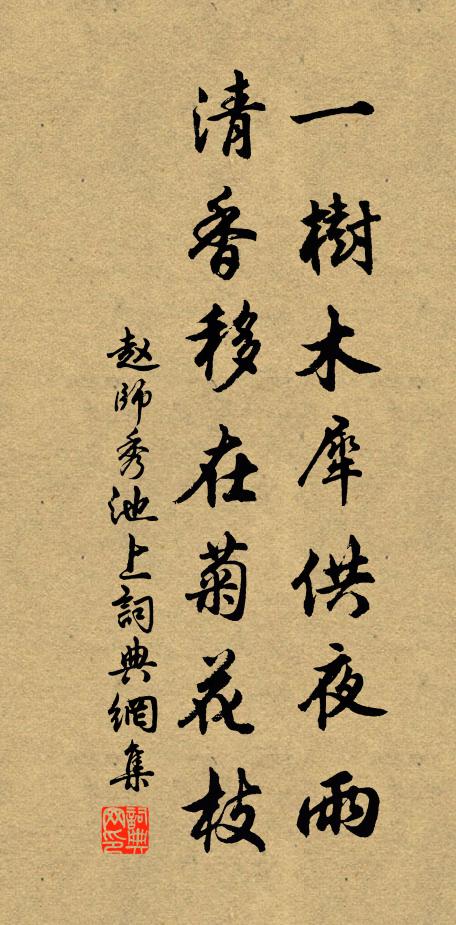 一樹木犀供夜雨
清香移在菊花枝
赵師秀池上詞典網集
詞典網印